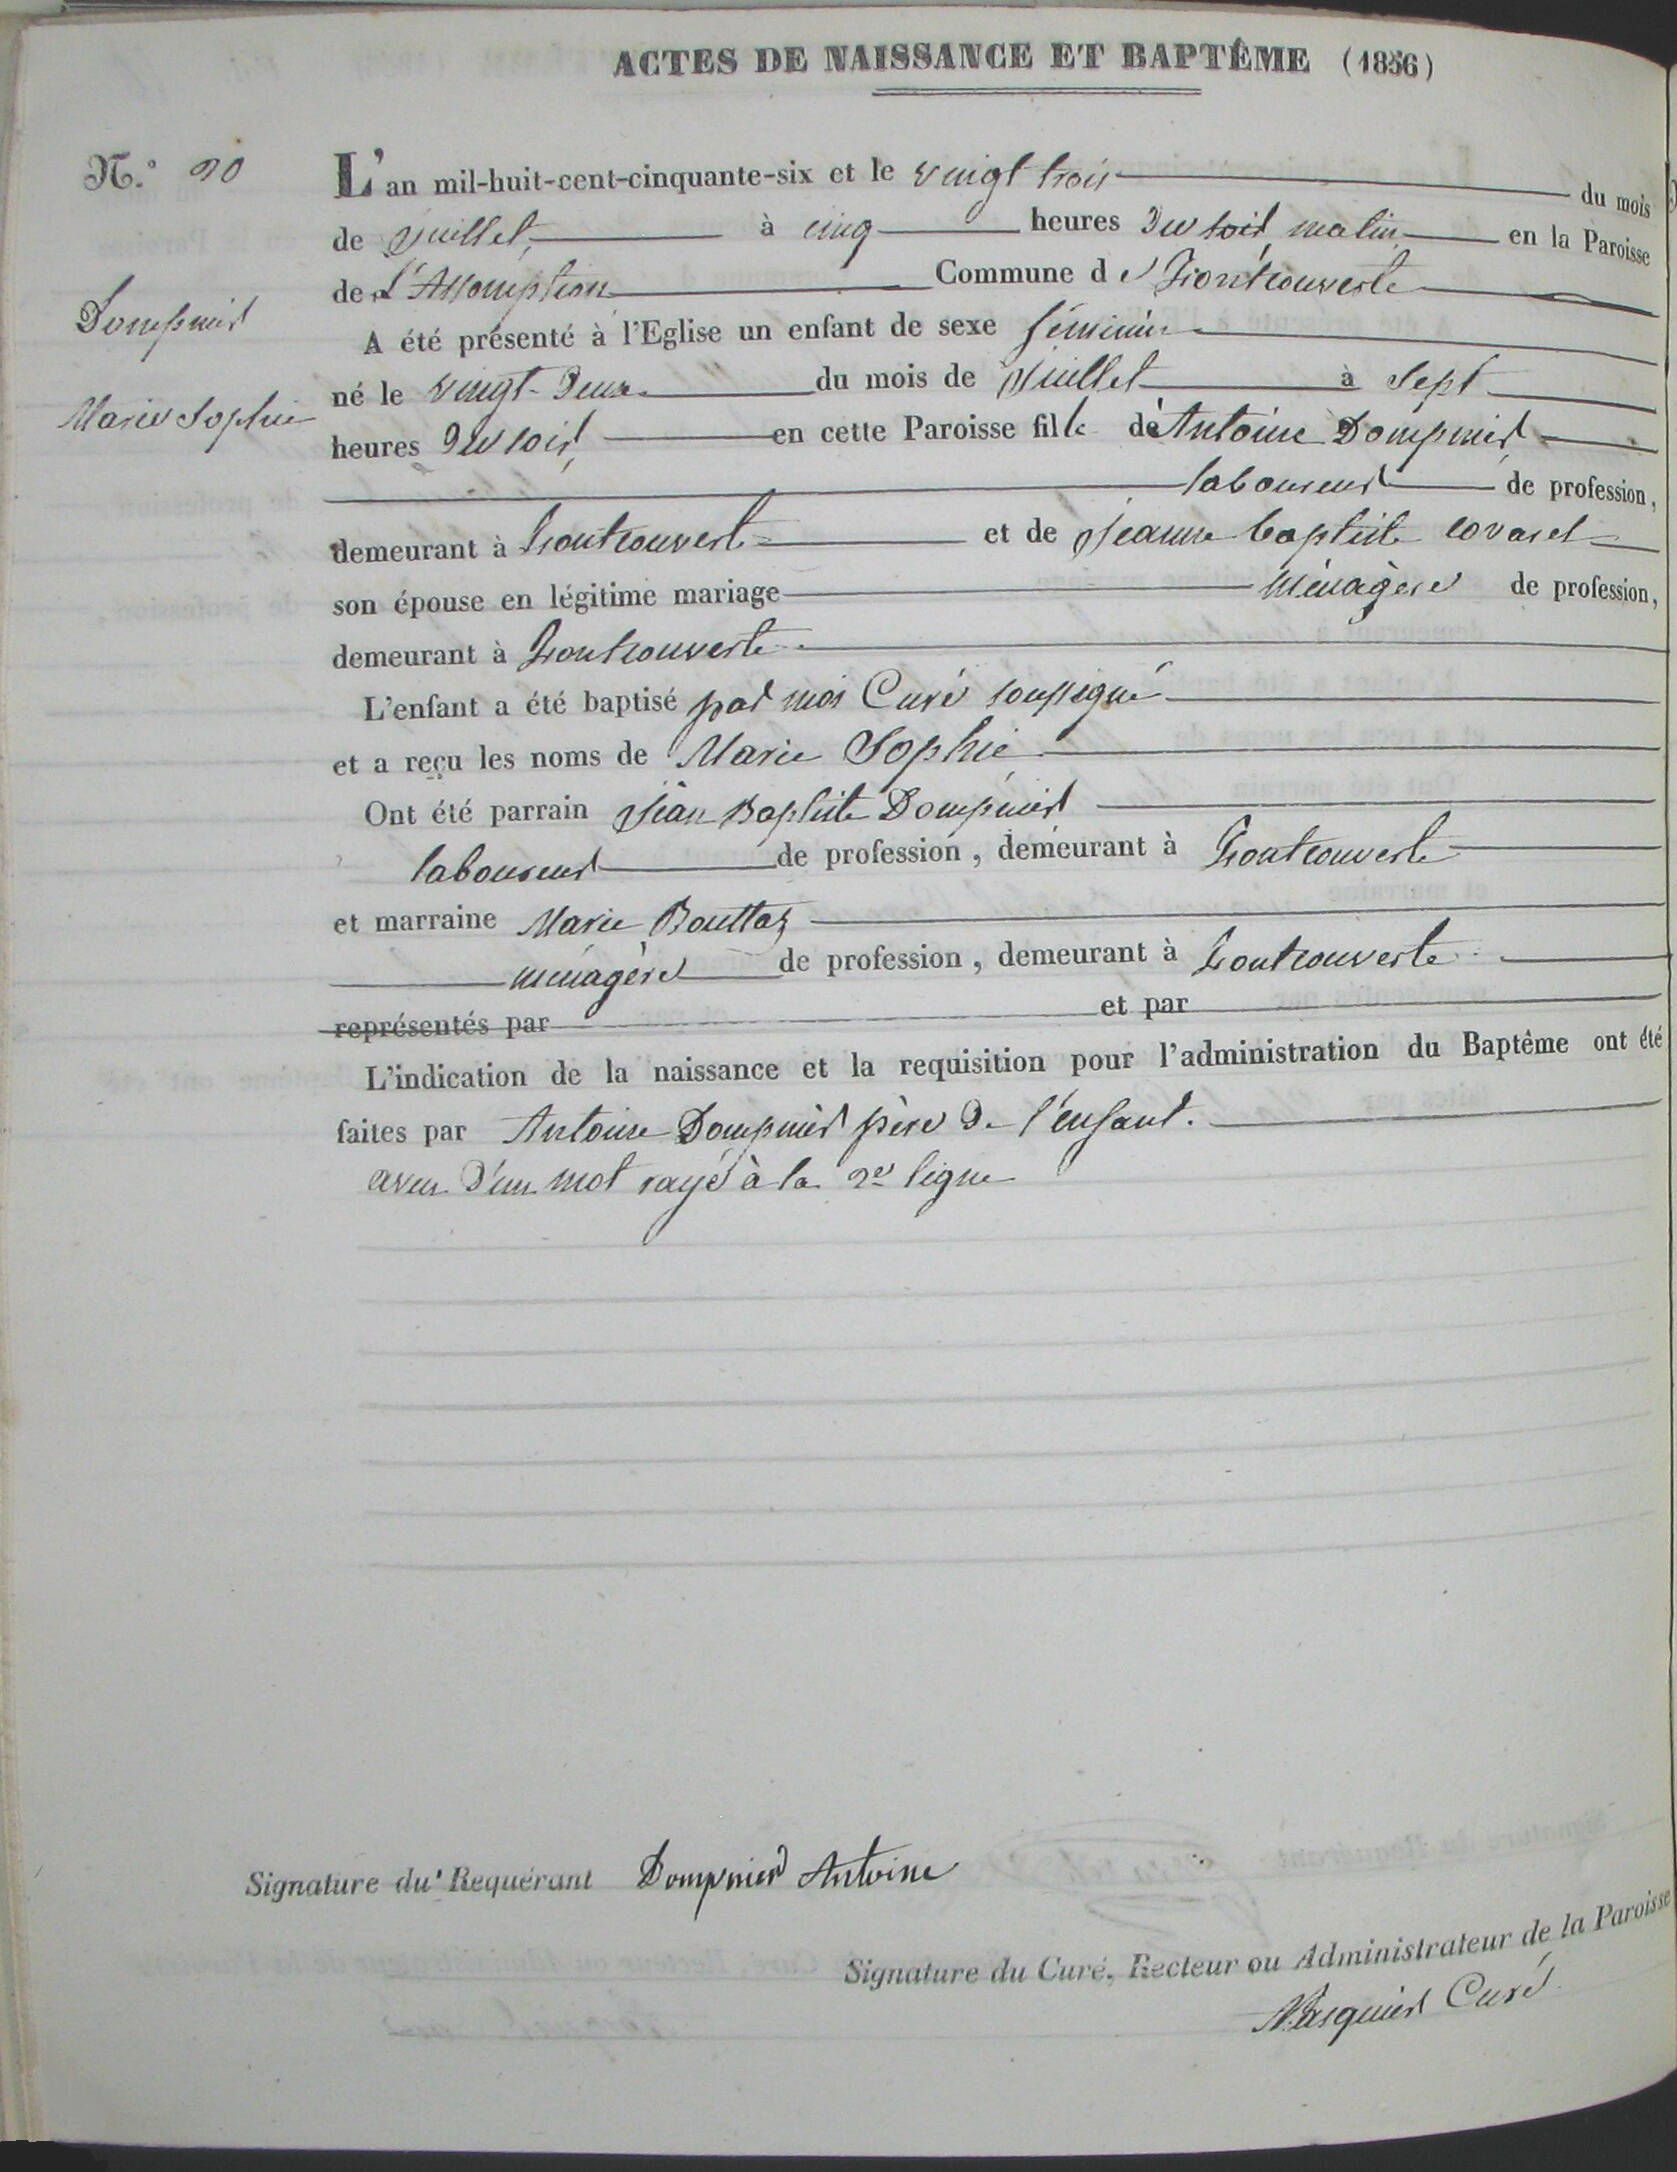 ACTES DE NAISSANCE ET BAPTÊME (1856)
N.° 20
L'an mil-huit-cent-cinquante-six et le vingt trois du mois
de juillet, à cinq heures du soir matin en la Paroisse
de l'Assomption Commune de Fontcouverte
Dompnier
A été présenté à l'Eglise un enfant de sexe féminin
né le vingt-deux du mois de juillet à sept
Marie Sophie
heures du soir, en cette Paroisse fille de Antoine Dompnier
laboureur de profession,
demeurant à Fontcouverte et de Jeanne baptiste covarel
son épouse en légitime mariage ménagère de profession,
demeurant à Fontcouverte
L'enfant a été baptisé par moi Curé soussigné
et a reçu les noms de Marie Sophie
Ont été parrain Jean Baptiste Dompnier
laboureur de profession, demeurant à Fontcouverte
et marraine Marie Bouttaz
ménagère de profession, demeurant à Fontcouverte
représentés par et par
L'indication de la naissance et la requisition pour l'administration du Baptême ont été
faites par Antoine Dompnier père de l'enfant.
aveu d'un mot rayé à la 2e ligne
Signature du Requérant Dompnier Antoine
Signature du Curé, Recteur ou Administrateur de la Paroisse
Curé